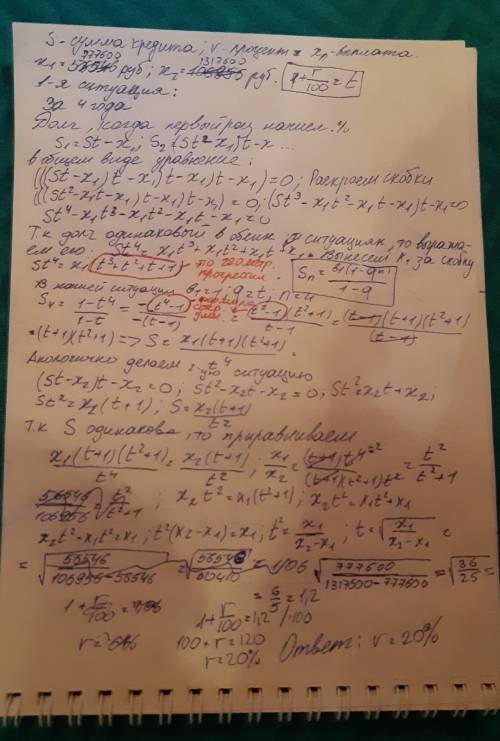 S - сумма кредита; r - процент; xn - выплата.
777600 1317600
x1 = 56546 руб; x2 = 106956 руб. 1+r/100=t
1-я ситуация:
За 4 года
Долг, когда первый раз начисл. %
S1 = St - x1; S2 = (St² - x1)t - x ...
в общем виде уравнение:
(((St-x1)t - x1)t - x1)t - x1) = 0; Раскроем скобки
((St²-x1t-x1)t-x1)t-x1) = 0; (St³-x1t²-x1t-x1)t-x1=0
St⁴-x1t³-x1t²-x1t-x1=0
Т.к долг одинаковый в обеих ситуациях, то выража-
ем его: St⁴ = x1t³+x1t²+x1t+x1. Вынесем x1 за скобку
St⁴ = x1(t³+t²+t+1) - это геометр. прогрессия. Sn = b1(1-qⁿ)/1-q
В нашей ситуации b1=1; q=t, n=4
S4 = 1-t⁴/1-t = -(t⁴-1)/-(1-t) = (t²-1)(t²+1)/t-1 = (t-1)(t+1)(t²+1)/(t-1)
=(t+1)(t²+1) => S = x1(t+1)(t²+1)/t⁴
Аналогично делаем 2-ую ситуацию
(St-x2)t-x2=0; St²-x2t-x2=0; St²=x2t+x2;
St²=x2(t+1); S = x2(t+1)/t²
Т.к S одинакова, то приравниваем
x1(t+1)(t²+1)/t⁴ = x2(t+1)/t²; x1/x2 = (t+1)t⁴/(t+1)(t²+1)t² = t²/t²+1
56546/106956 = t²/t²+1; x2t²=x1(t²+1); x2t²=x1t²+x1
x2t²-x1t²=x1; t²(x2-x1)=x1; t²=x1/x2-x1; t=√x1/x2-x1 =
=√56546/106956-56546 = √56546/50410 = 1,06 √777600/1317600-777600 = √36/25 =
= 6/5 = 1,2
1+r/100=1,06 1+r/100=1,2 /·100
r=6% 100+r=120 Ответ: r=20%
r=20%